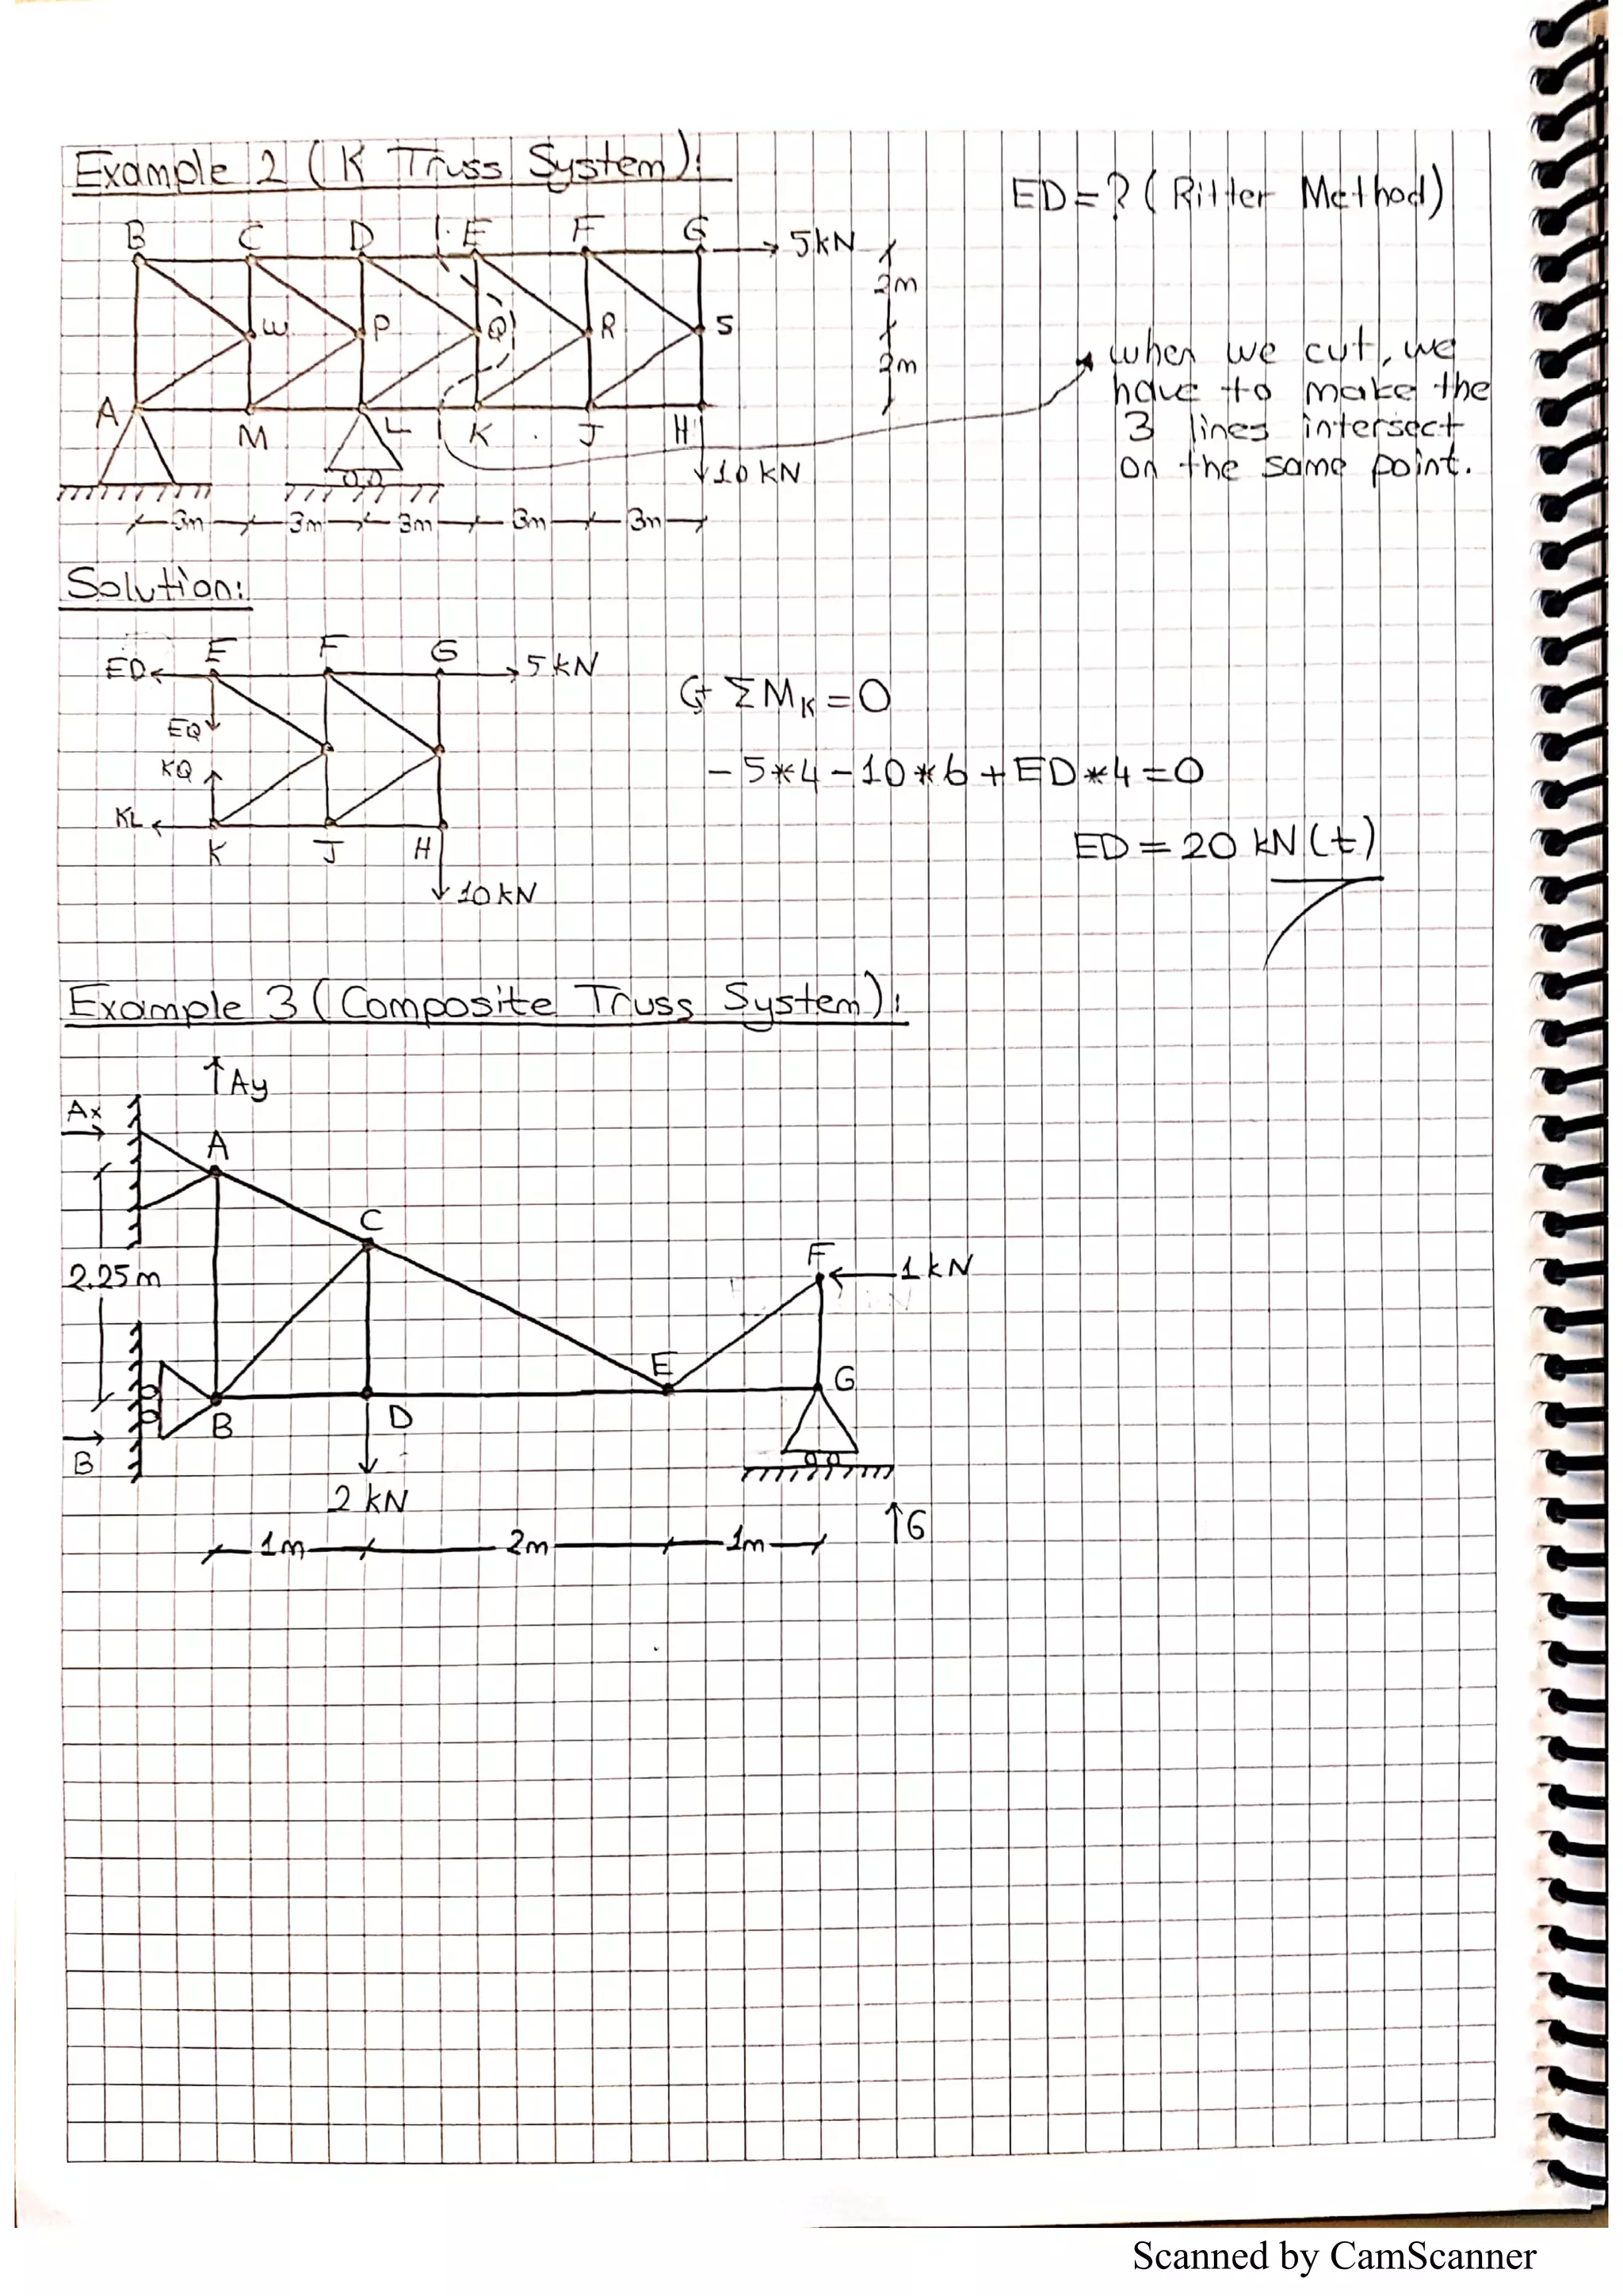 Example 2 (K Truss System):
ED = ? (Ritter Method)
B C D E F G
5kN
2m
W P Q R S
2m
when we cut, we
have to make the
3 lines intersect
on the same point.
A M L K J H
10 kN
3m 3m 3m 3m 3m
Solution:
ED E F G 5 kN
EQ
KQ
KL
K J H
10 kN
↺+ ΣMK = 0
- 5*4 - 10*6 + ED*4 = 0
ED = 20 kN (t)
Example 3 (Composite Truss System):
Ay
Ax
A
C
2.25m
F 1 kN
E
G
B D
B
2 kN
G
1m 2m 1m
Scanned by CamScanner